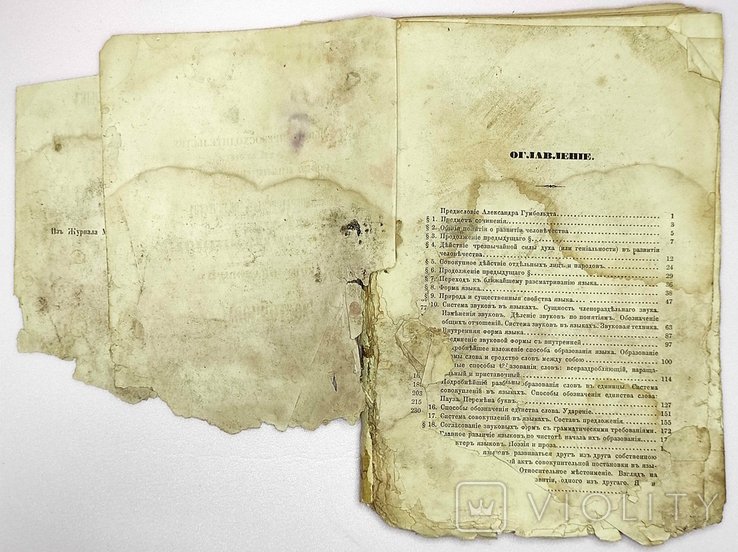 Изъ Журнала М
ОГЛАВЛЕНІЕ.
Предисловіе Александра Гумбольдта. 1
§ 1. Предметъ сочиненія. 3
§ 2. Общія понятія о развитіи человѣчества. 5
§ 3. Продолженіе предыдущаго §. 7
§ 4. Дѣйствіе чрезвычайной силы духа (или геніальности) въ развитіи
человѣчества. 12
§ 5. Совокупное дѣйствіе отдѣльныхъ лицъ и народовъ. 24
§ 6. Продолженіе предыдущаго §. 29
§ 7. Переходъ къ ближайшему разсматриванію языка. 36
§ 8. Форма языка. 38
§ 9. Природа и существенныя свойства языка. 47
77 10. Система звуковъ въ языкахъ. Сущность членораздѣльнаго звука.
Измѣненія звуковъ. Дѣленіе звуковъ по понятіямъ. Обозначеніе
общихъ отношеній. Система звуковъ въ языкахъ. Звуковая техника. 63
Внутренняя форма языка. 87
единеніе звуковой формы съ внутренней 97
робнѣйшее изложеніе способа образованія языка. Образованіе
мы слова и сродство словъ между собою 100
ные способы образованія словъ: всераздробляющій, нараща-
льный и приставочный. 114
18 Подробнѣйшій разборъ образованія словъ въ единицы. Система
203 совокупленій въ языкахъ. Способы обозначенія единства слова:
215 Пауза. Перемѣна буквъ.
230 16. Способы обозначенія единства слова. Удареніе. 151
17. Система совокупленій въ языкахъ. Составъ предложенія. 155
§ 18. Согласованіе звуковыхъ формъ съ грамматическими требованіями. 172
Главное различіе языковъ по чистотѣ начала ихъ образованія. 177
ктеръ языковъ. Поэзія и проза.
языковъ развиваться другъ изъ друга собственною
й актъ совокупительной постановки въ язы-
Относительное мѣстоименіе. Взглядъ на
звитія, одного изъ другаго.
VIOLITY